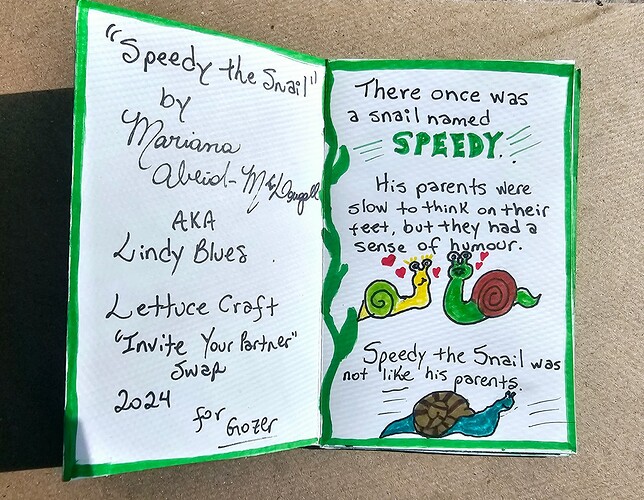 "Speedy the Snail"
by
Mariana
Abeid-McDougall
AKA
Lindy Blues
Lettuce Craft
"Invite Your Partner"
Swap
2024
for
Gozer
There once was
a snail named
SPEEDY..
His parents were
slow to think on their
feet, but they had a
sense of humour.
Speedy the Snail was
not like his parents.